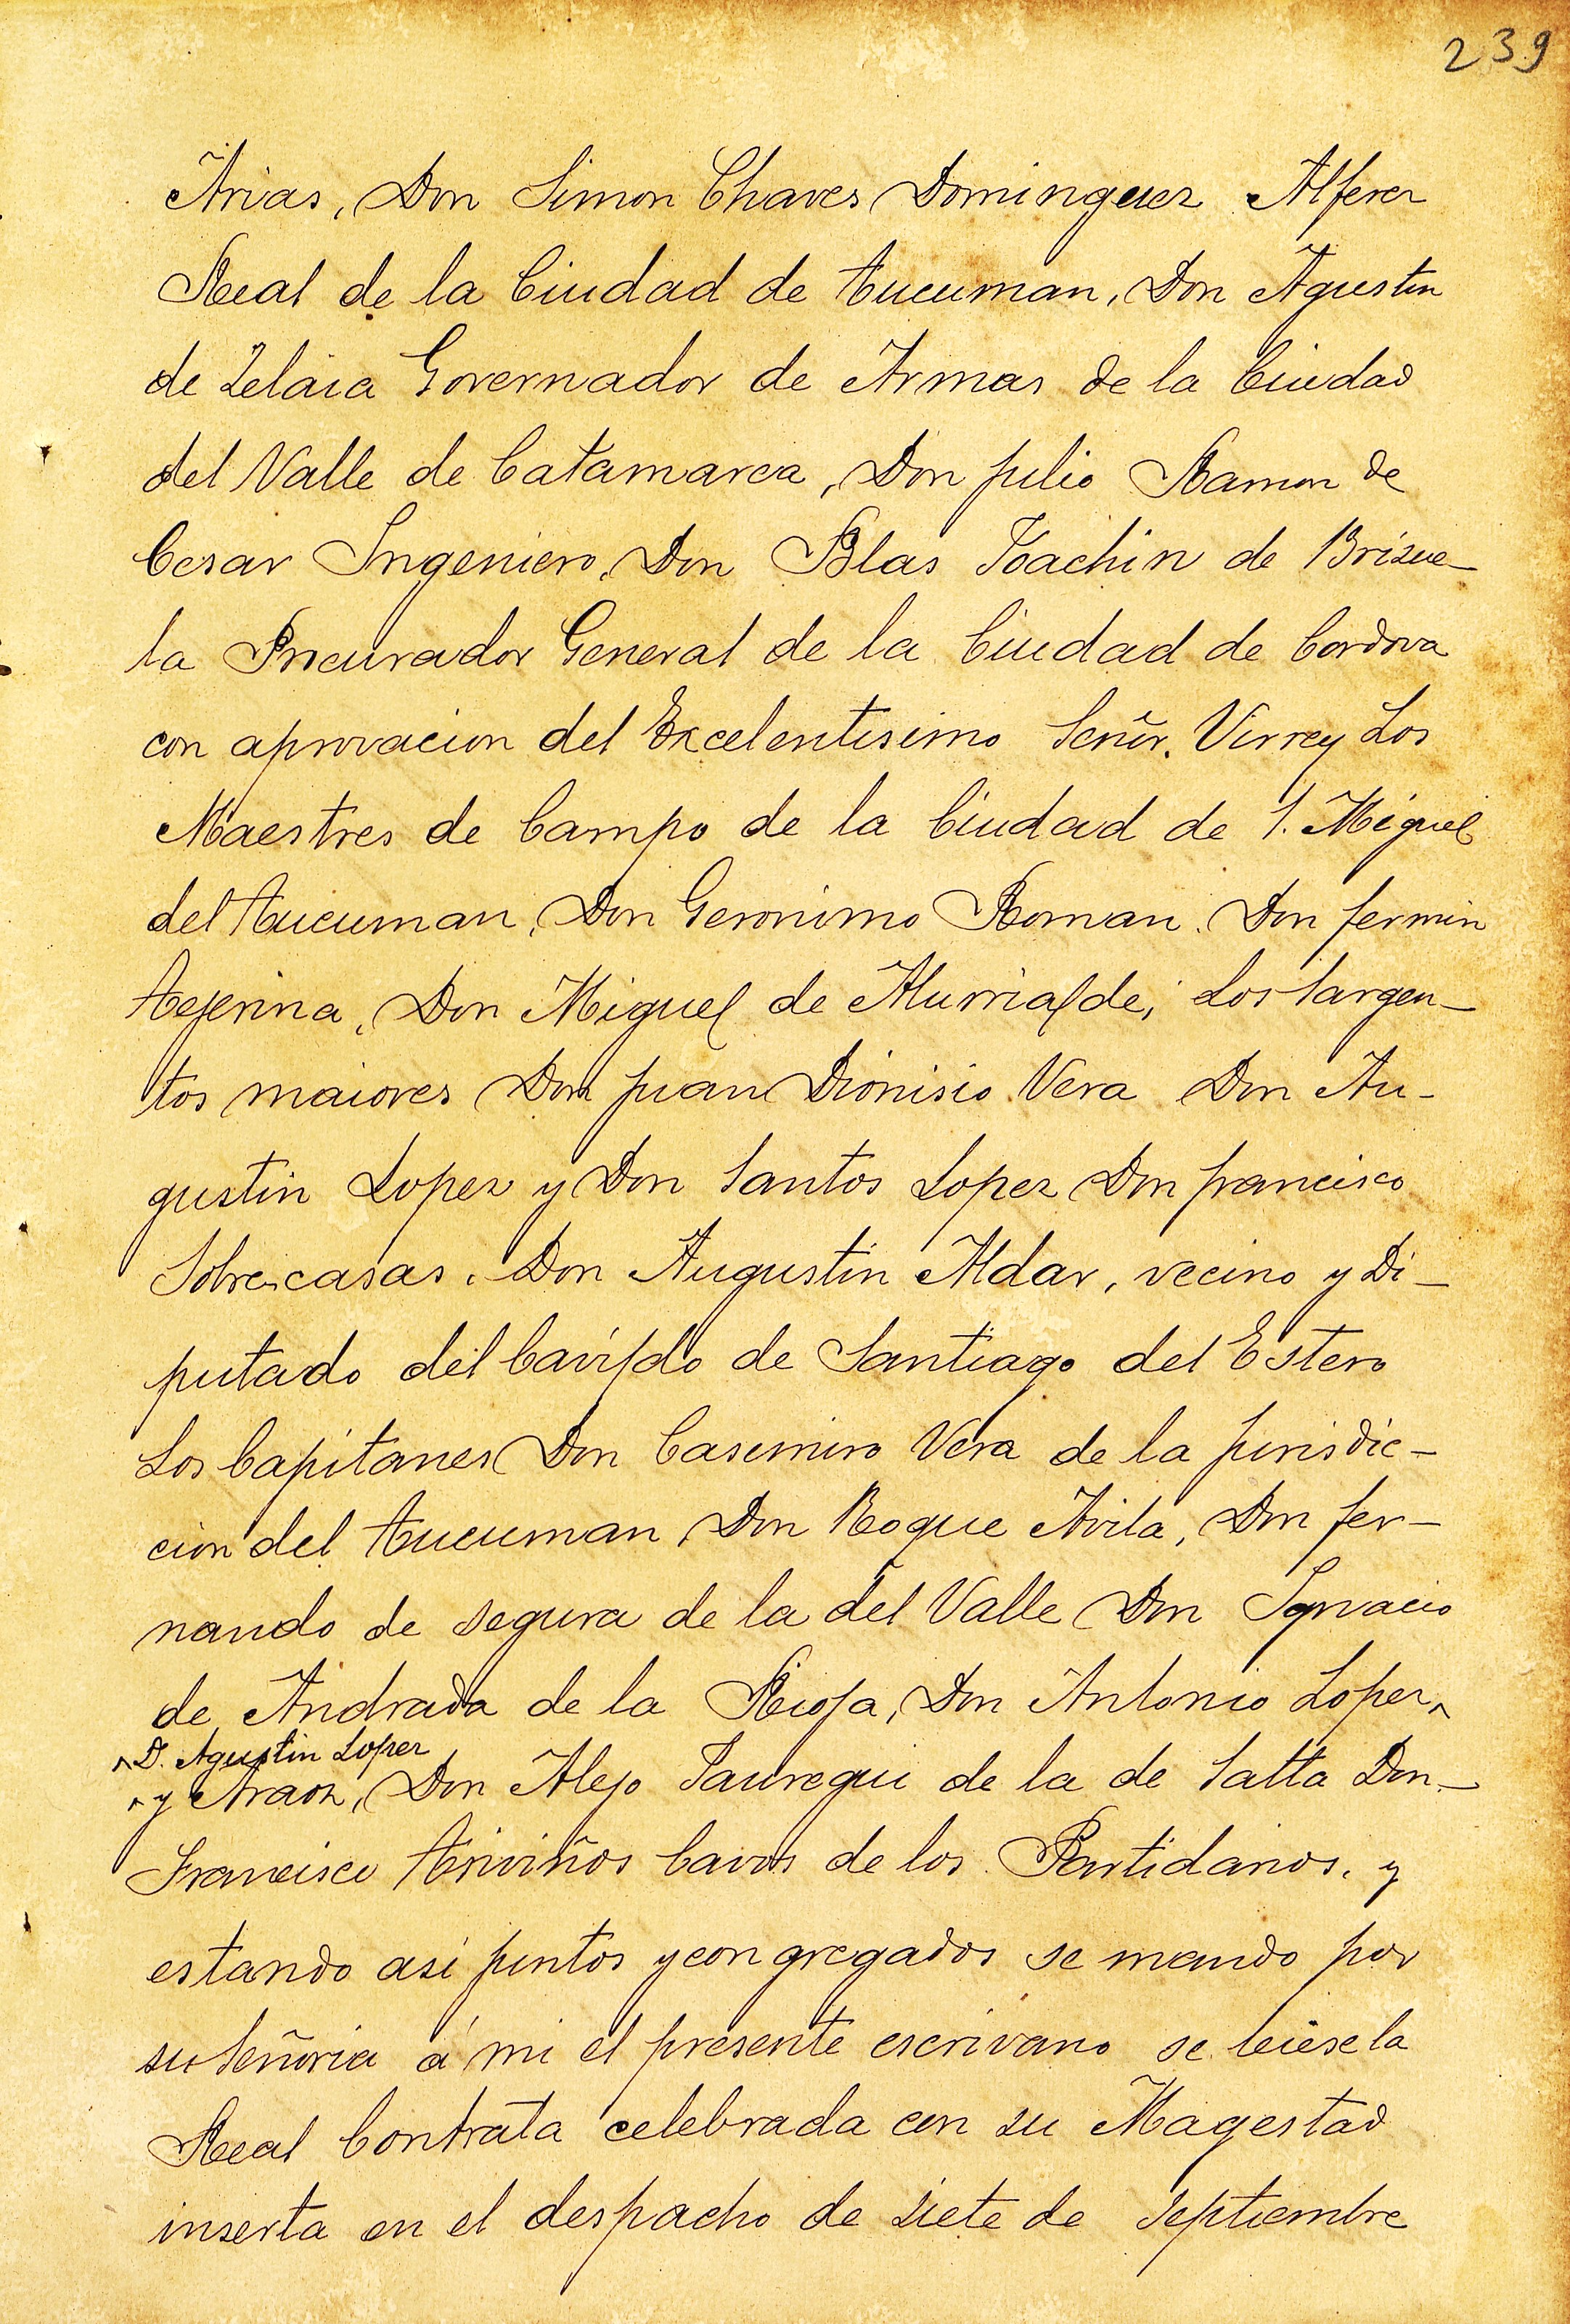 239
Arias, Don Simon Chaves Dominguez Alferez
Real de la Ciudad de Tucuman, Don Agustin
de Zelaia Governador de Armas de la Ciudad
del Valle de Catamarca, Don Julio Ramon de
Cesar Ingeniero, Don Blas Joachin de Brizue-
la Procurador General de la Ciudad de Cordova
con aprovacion del Excelentisimo Señor. Virrey Los
Maestres de Campo de la Ciudad de S. Miguel
del Tucuman, Don Geronimo Roman. Don fermin
Tejerina, Don Miguel de Alurralde, Los Sargen-
tos maiores Don Juan Dionisio Vera Don Au-
gustin Lopez y Don Santos Lopez Don francisco
Sobrecasas. Don Augustin Aldar, vecino y Di-
putado del Cavildo de Santiago del Estero
Los Capitanes Don Casimiro Vera de la Jurisdic-
cion del Tucuman Don Roque Avila, Don fer-
nando de segura de la del Valle Don Ignacio
de Andrada de la Rioja, Don Antonio Lopez ^
^ D. Agustin Lopez
^ y Araoz, Don Alejo Jauregui de la de Salta Don-
Francisco Triviños Cavos de los Partidarios, y
estando asi juntos y congregados se mando por
su Señoria á mi el presente escrivano se leiese la
Real Contrata celebrada con su Magestad
inserta en el despacho de siete de septiembre